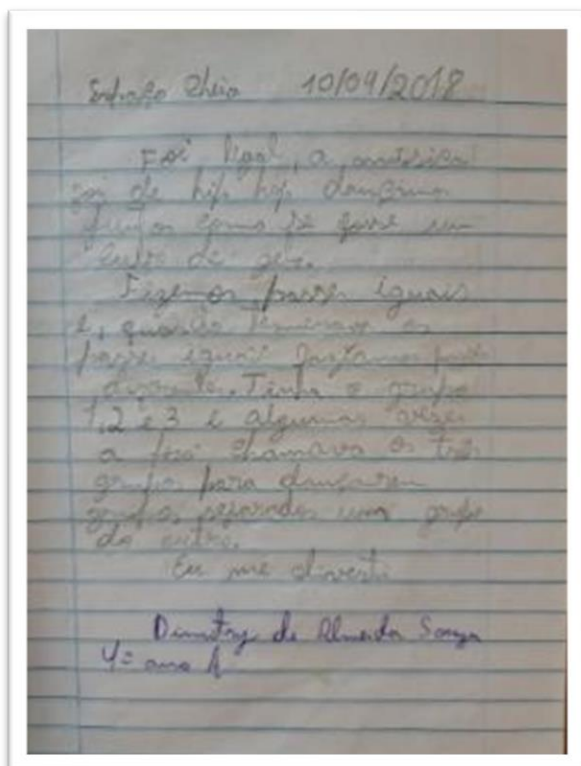 Espaço Cheio 10/04/2018
Foi legal, a música
foi de hip hop dançamos
juntos como se fosse um
de
Fizemos passes iguais
e, quando os
passes iguais passes
diferentes. Tinha o grupo
1,2 e 3 e algumas vezes
a chamava os três
grupos para dançarem
grupos separados um grupo
do outro.
Eu me diverti
Dimitry de Almeida Souza
4º ano A